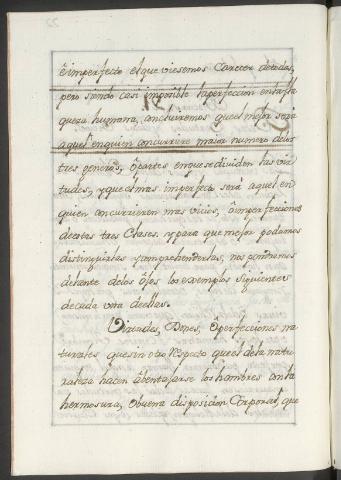 é imperfecto el que viesemos Carecer de todas,
pero siendo casi imposible la perfeccion en la fla
queza humana, concluiremos que el mejor será
aquel en quien concurriere maior numero de los
tres generos, ó partes, en que se dividen las vir
tudes, y que el mas imperfecto será aquel en
quien concurrieren mas vicios, ó imperfecciones
de estas tres Clases y para que mejor podamos
distinguirlas y comprehenderlas, nos pondremos
delante de los ôjos los exemplos siguientes
de cada una de ellas.
Virtudes, Dones, ô perfecciones na
turales que sin otro Respecto que el de la natu
raleza hacen abentajarse los hombres en la
hermosura, ô buena disposicion Corporal, que